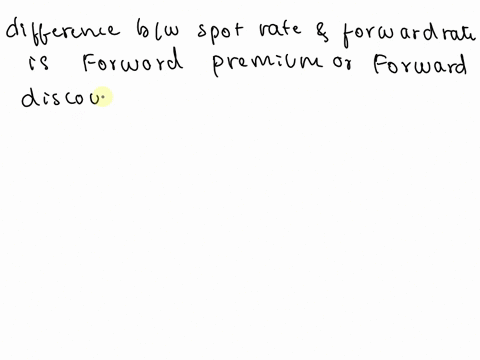 difference b/w spot rate & forward rate
is Forword premium or Forward
discou